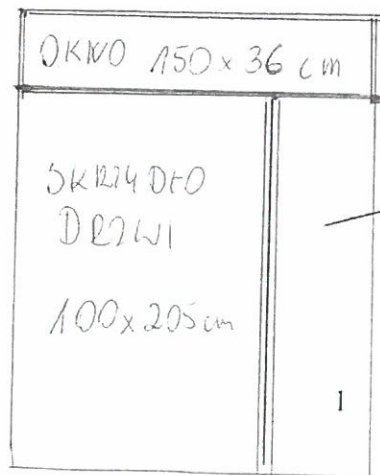 OKNO 150 x 36 cm
SKRZYDŁO
DRZWI
100x205 cm
1